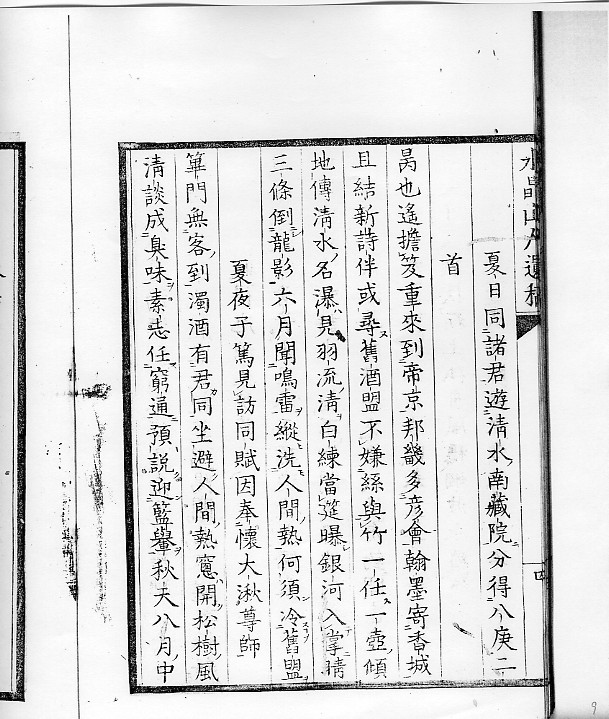 水晶山人遺稿
夏日同諸君遊清水南藏院分得八庚二
首
昺也遙擔笈重來到帝京邦畿多彦會翰墨寄香城
且結新詩伴或尋舊酒盟不嫌絲與竹一任一壺傾
地傳清水名瀑見羽流清白練當筵曝銀河入掌晴
三條倒龍影六月聞鳴雷縱洗人間熱何須冷舊盟
夏夜子篤見訪同賦因奉懷大湫尊師
篳門無客到濁酒有君同坐避人間熱窓開松樹風
清談成臭味素志任窮通預説迎籃轝秋天八月中
四
9